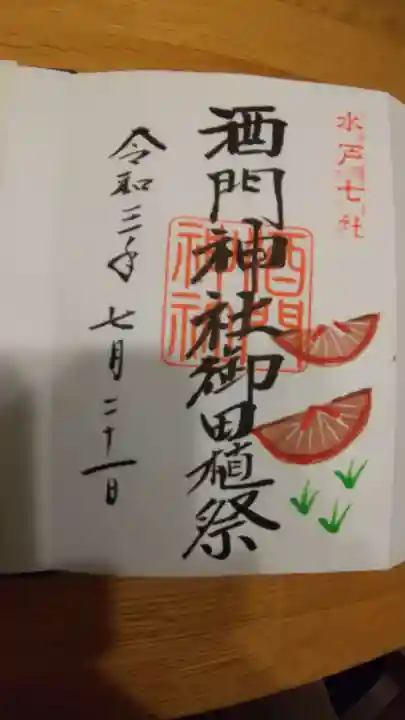 水戸七社
酒門神社御田植祭
酒門神社
令和三年七月二十一日